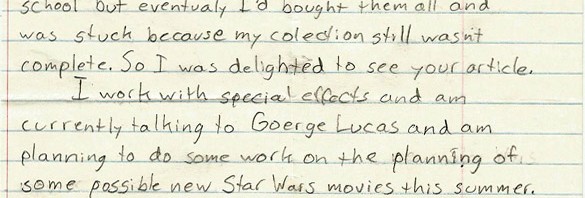 school but eventualy I'd bought them all and
was stuck because my colection still wasn't
complete. So I was delighted to see your article.
I work with special effects and am
currently talking to Goerge Lucas and am
planning to do some work on the planning of
some possible new Star Wars movies this summer.